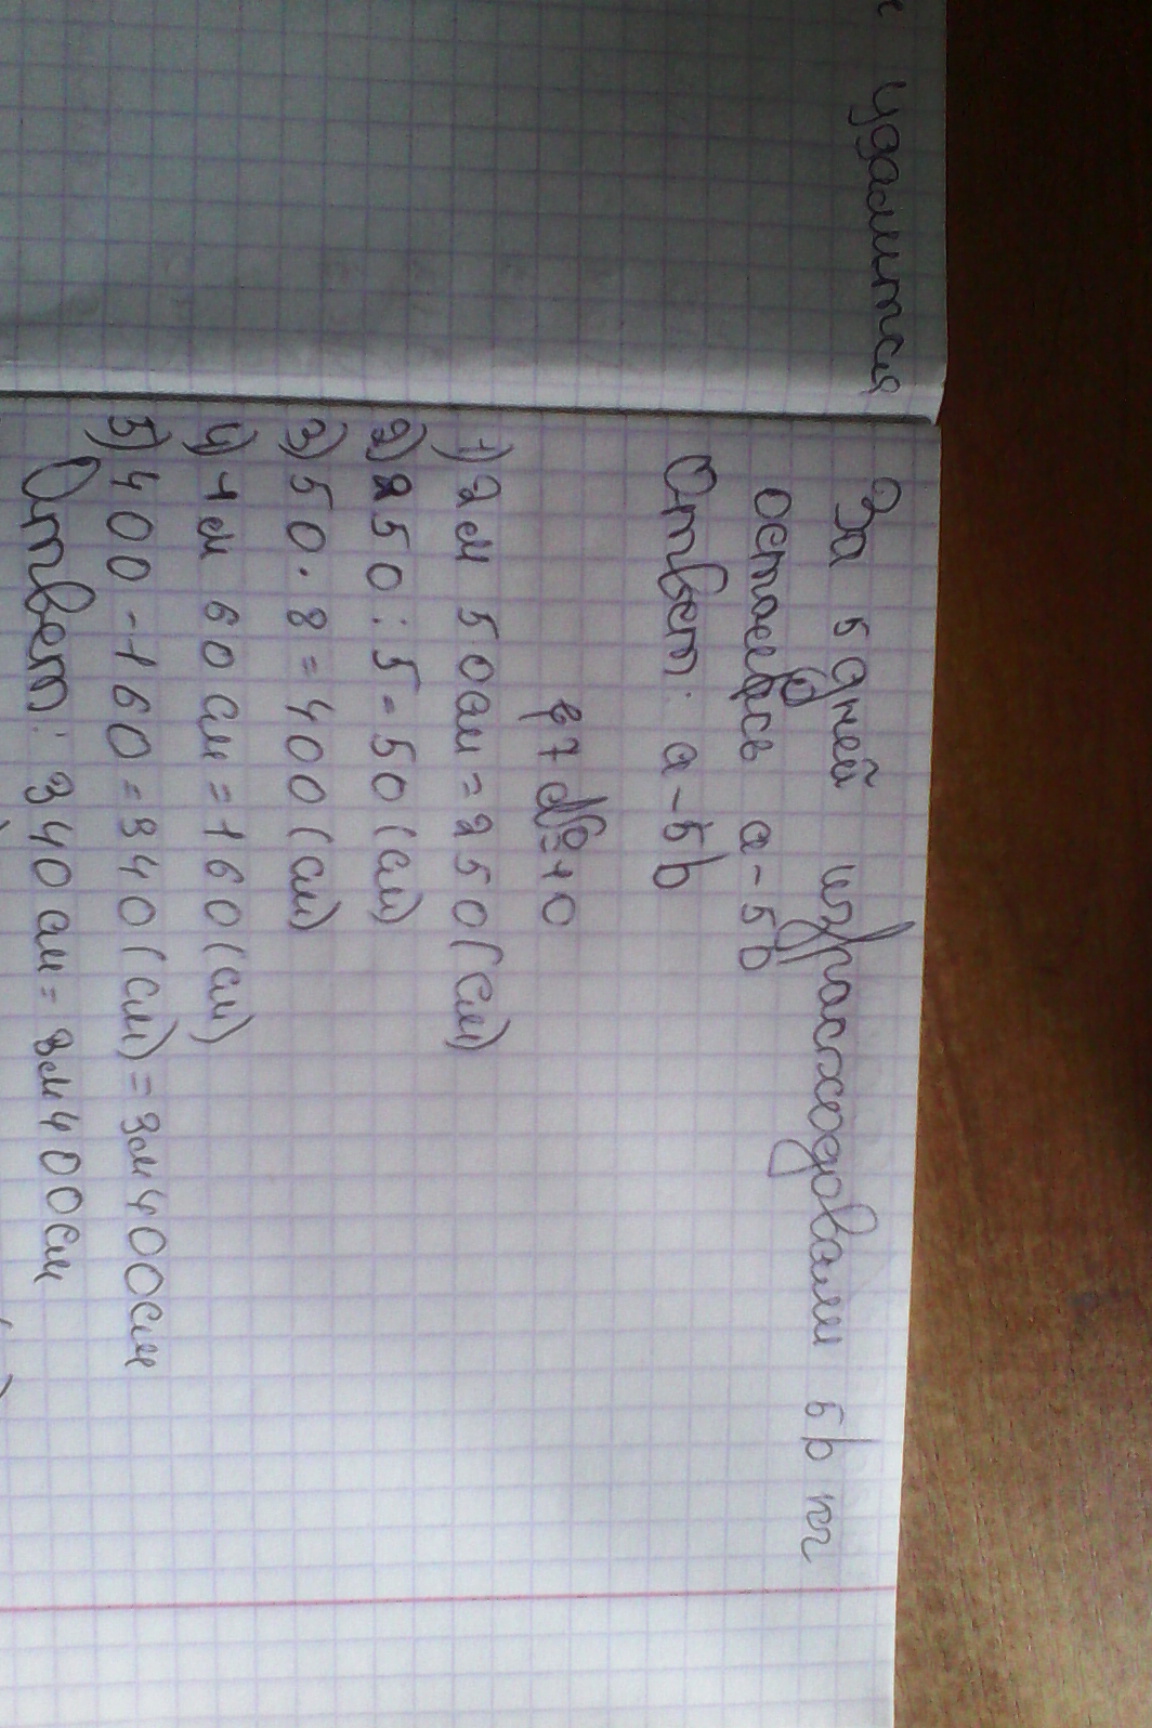 удалится
За 5 дней израсходовали 5b кг
осталось a-5b
Ответ: a-5b
р7 №10
1) 2м 50см=250(см)
2) 250:5=50(см)
3) 50·8=400(см)
4) 1м 60см=160(см)
5) 400-160=340(см)=3м400см
Ответ: 340см=3м400см